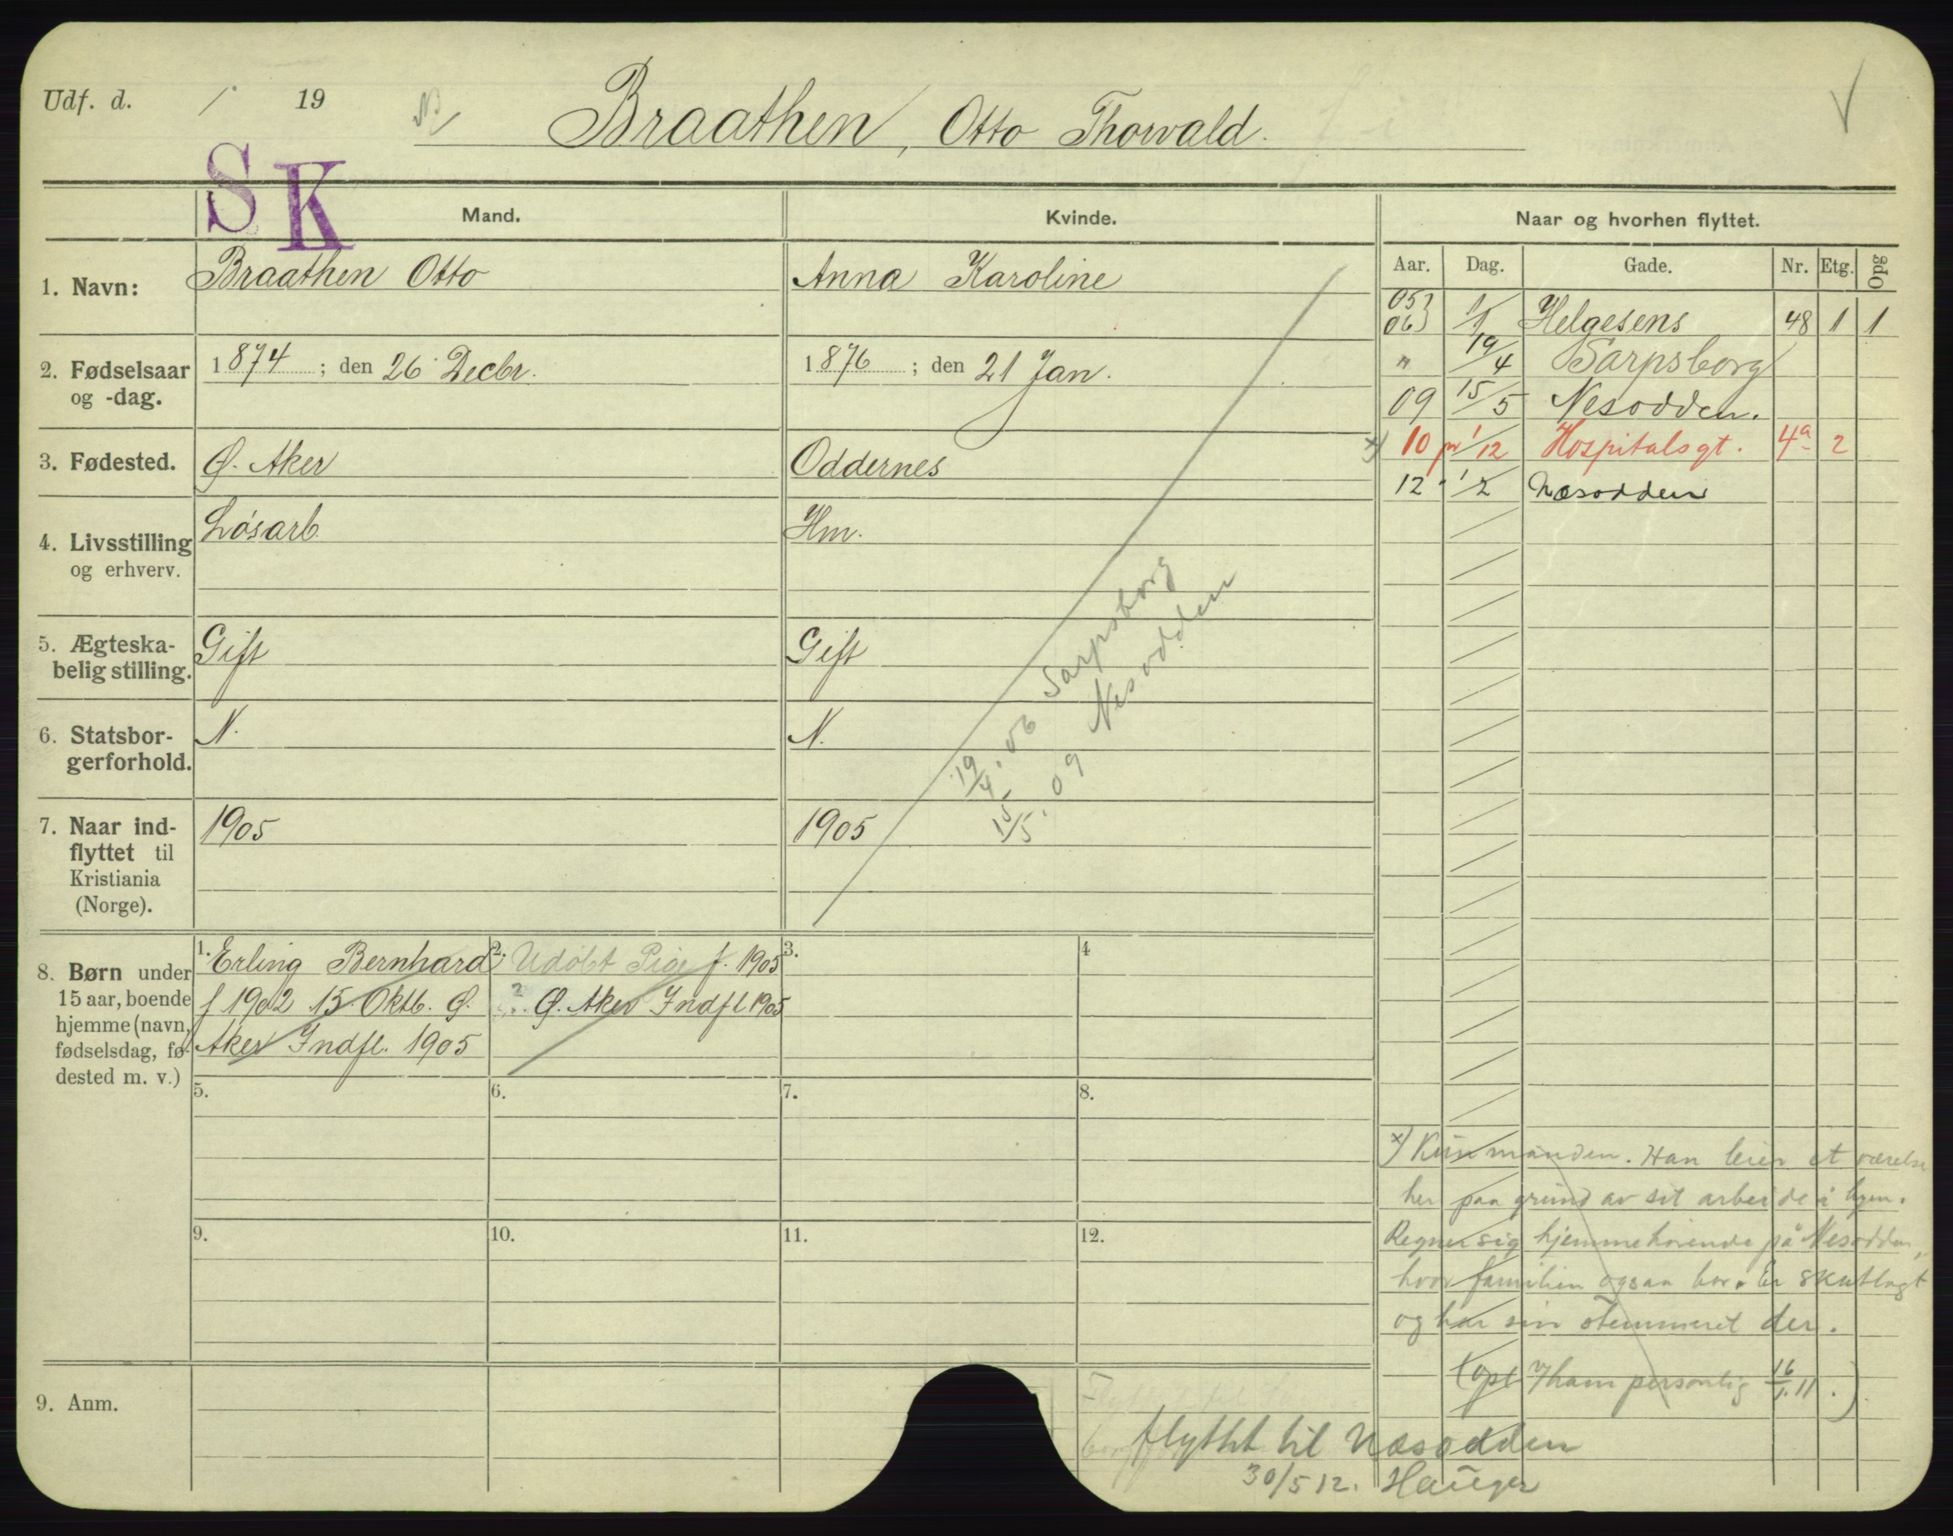 Udf. d. 19
Braathen, Otto Thorvald.
SK
Mand.
Kvinde.
Naar og hvorhen flyttet.
Aar. Dag. Gade. Nr. Etg. Opg
1. Navn: Braathen Otto
Anna Karoline
2. Fødselsaar og -dag.
1874 ; den 26 Decbr.
1876 ; den 21 Jan.
3. Fødested. Ø. Aker
Oddernes
4. Livsstilling og erhverv.
Løsarb.
Hm.
5. Ægteska-
belig stilling.
Gift
Gift
6. Statsbor-
gerforhold.
N.
N.
7. Naar ind-
flyttet til
Kristiania
(Norge).
1905
1905
19/4. 06 Sarpsborg
15/5. 09 Nesodden
05} 06} 1/1 Helgesens 48 1 1
" 19/4 Sarpsborg
09 15/5 Nesodden.
x) 10 pr 1/12 Hospitalsgt. 4a 2
12 1/2 Næsodden
8. Børn under
15 aar, boende
hjemme (navn,
fødselsdag, fø-
dested m. v.)
1. Erling Bernhard
f 1902 15. Oktb. Ø.
Aker Indfl. 1905
2. Udøbt Pige f. 1905
? Ø. Aker Indfl 1905
3.
4
5.
6.
7.
8.
9.
10.
11.
12.
x) Kun manden. Han leier et værelse
her paa grund av sit arbeide i byen.
Regner sig hjemmehørende på Nesodden,
hvor familien ogsaa bor. Er skatlagt
og har sin stemmeret der.
(opl v/ ham personlig 16/1. 11.)
9. Anm.
flyttet til Næsodden
30/5 12. Hauger